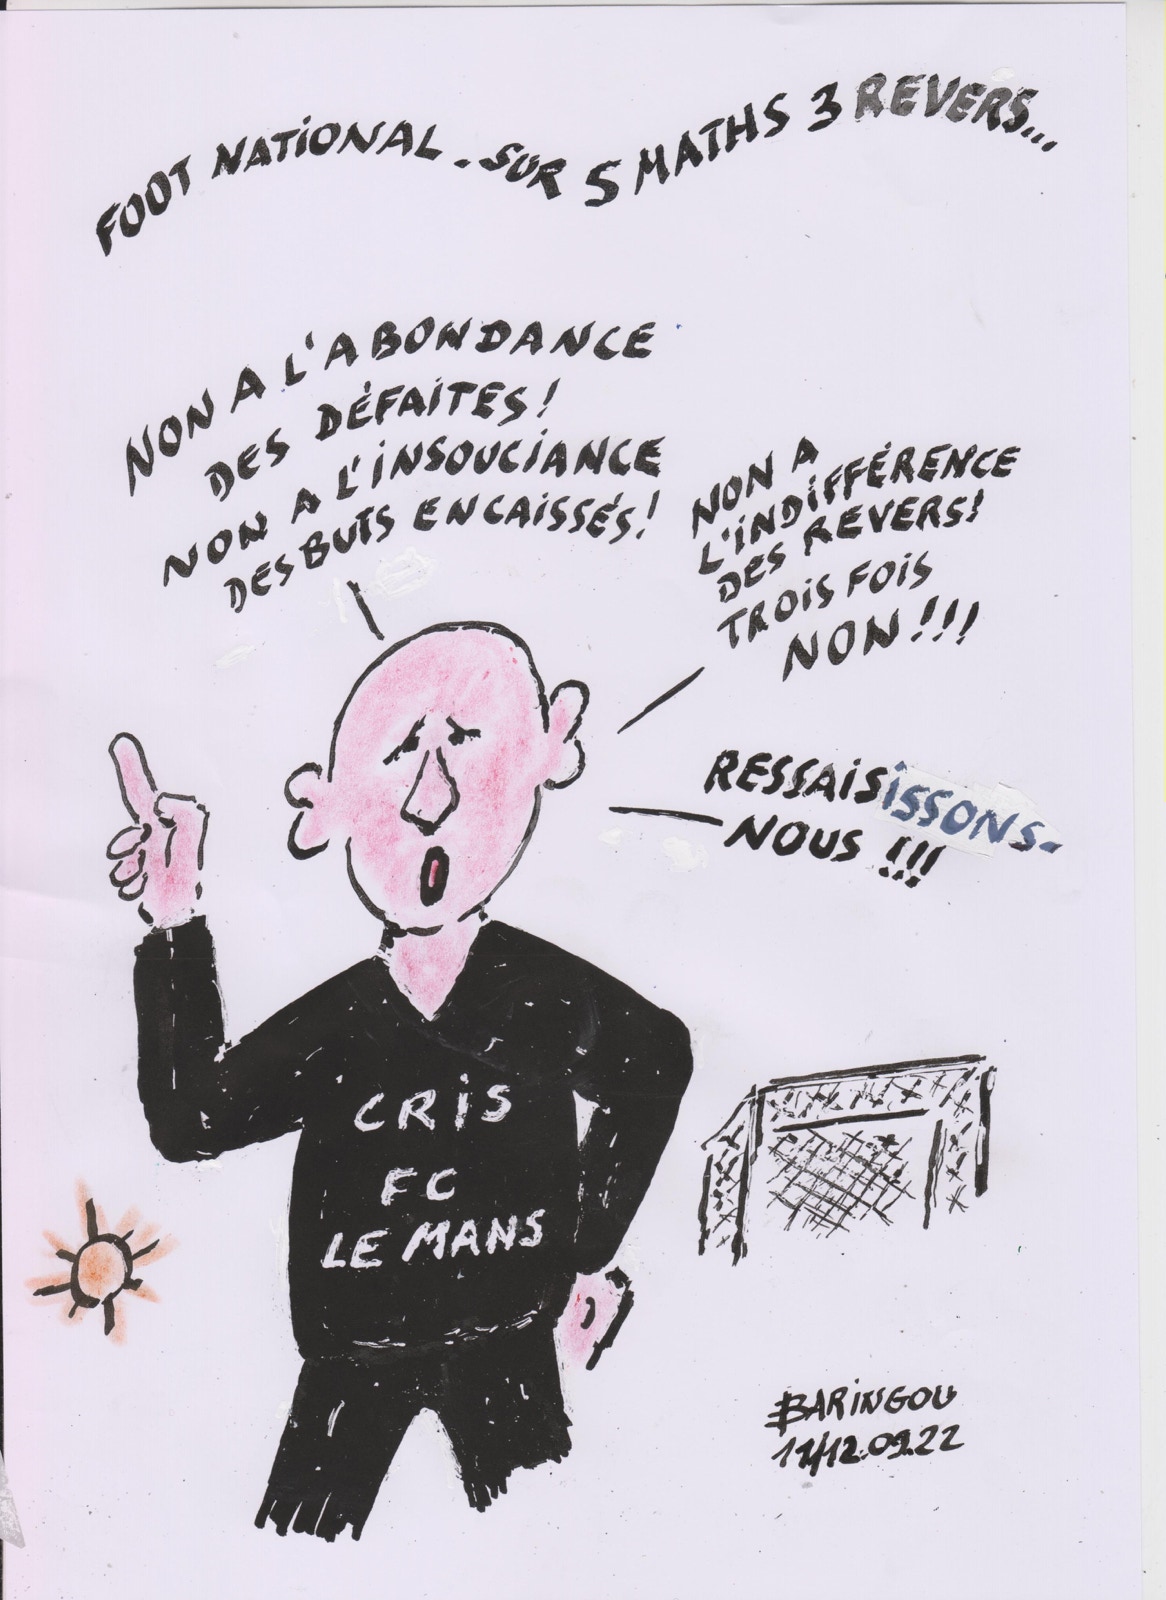 FOOT NATIONAL. SUR 5 MATHS 3 REVERS...
NON A L'ABONDANCE
DES DÉFAITES!
NON A L'INSOUCIANCE
DES BUTS ENCAISSÉS!
NON A
L'INDIFFÉRENCE
DES REVERS!
TROIS FOIS
NON!!!
RESSAISISSONS-
NOUS!!!
CRIS
FC
LE MANS
BARINGOU
11/12.09.22